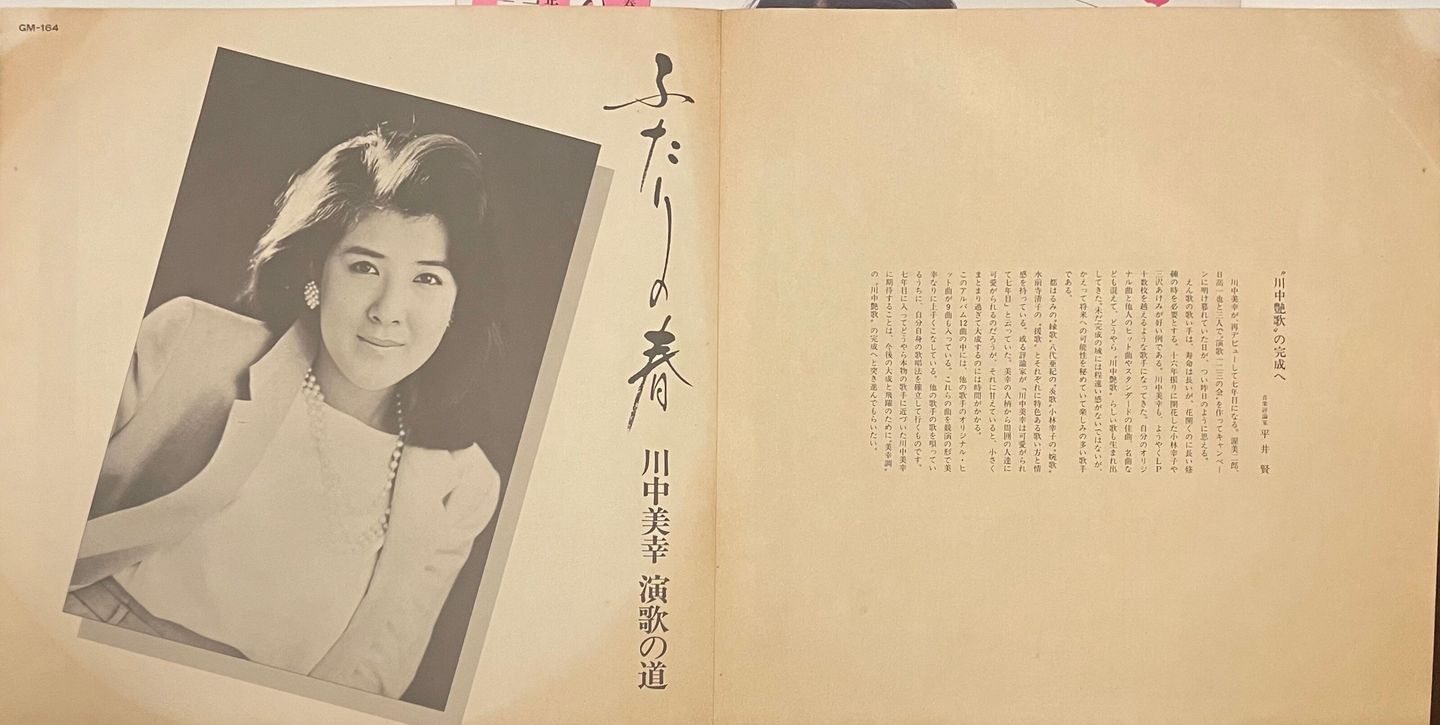 GM-164
ふたりの春
川中美幸 演歌の道
〝川中艶歌〟の完成へ
音楽評論家 平井 賢
川中美幸が、再デビューして七年目になる。渥美二郎、
日高一也と三人で〝演歌一二三の会〟を作ってキャンペー
ンに明け暮れていた日が、つい昨日のように思える。
えん歌の歌い手は、寿命は長いが、花開くのに長い修
練の時を必要とする。十六年振りに開花した小林幸子や
三沢あけみが好い例である。川中美幸も、ようやくLP
十数枚を越えるような歌手になってきた。自分のオリジ
ナル曲と他人のヒット曲やスタンダードの佳曲、名曲な
ども混えて、どうやら〝川中艶歌〟らしい歌も生まれ出
してきた。未だ完成の域には程遠い感がないではないが、
かえって将来への可能性を秘めていて楽しみの多い歌手
である。
都はるみの〝縁歌〟八代亜紀の〝炎歌〟小林幸子の〝婉歌〟
水前寺清子の〝援歌〟とそれぞれに特色ある歌い方と情
感を持っている。或る評論家が「川中美幸は可愛がられ
て七年目」と云っていた。美幸の人柄から周囲の人達に
可愛がられるのだろうが、それに甘えていると、小さく
まとまり過ぎて大成するのには時間がかかる。
このアルバム12曲の中には、他の歌手のオリジナル・ヒ
ット曲が9曲も入っている。これらの曲を競演の形で美
幸なりに上手くこなしている。他の歌手の歌を唄ってい
るうちに、自分自身の歌唱法を確立して行くものです。
七年目に入ってどうやら本物の歌手に近づいた川中美幸
に期待することは、今後の大成と飛躍のために〝美幸調〟
の、〝川中艶歌〟の完成へと突き進んでもらいたい。